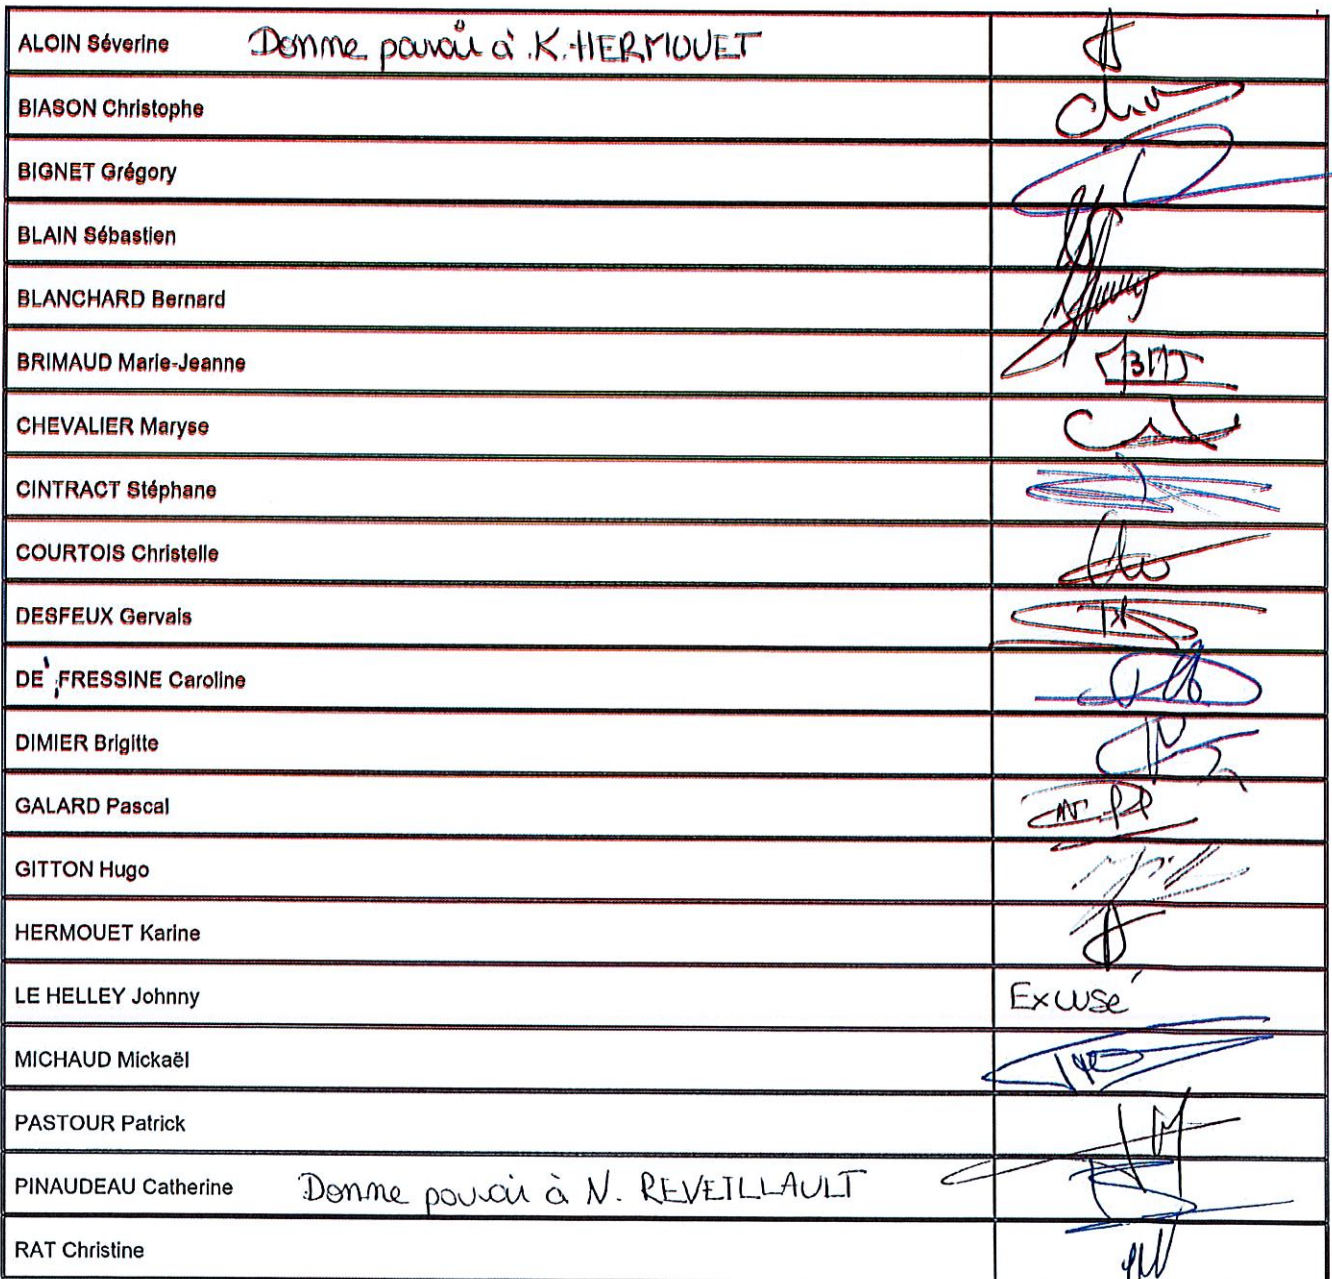 ALOIN Séverine Donne pouvoir à K. HERMOUET
BIASON Christophe
BIGNET Grégory
BLAIN Sébastien
BLANCHARD Bernard
BRIMAUD Marie-Jeanne BMJ
CHEVALIER Maryse
CINTRACT Stéphane
COURTOIS Christelle
DESFEUX Gervais
DE FRESSINE Caroline
DIMIER Brigitte
GALARD Pascal
GITTON Hugo
HERMOUET Karine
LE HELLEY Johnny Excusé
MICHAUD Mickaël
PASTOUR Patrick
PINAUDEAU Catherine Donne pouvoir à N. REVEILLAULT
RAT Christine